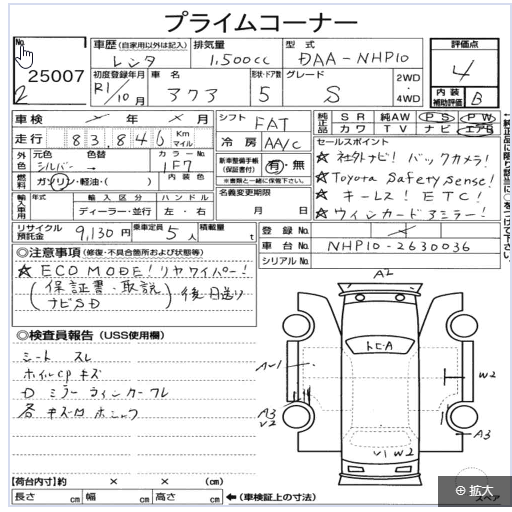 プライムコーナー
No.
25007
2
車歴 (自家用以外は記入)
レンタ
排気量
1,500cc
型式
DAA-NHP10
評価点
4
初度登録年月
R1/10月
車名
アクア
形状・ドア数
5
グレード
S
2WD
・
4WD
内装
補助評価
B
車検 年 月
走行 83,846 Km マイル
シフト FAT
冷房 AA/C
純正品 SR 純AW PS PW
カワ TV ナビ エアB
外色 元色 シルバー 色替 →
カラーNo. 1F7
燃料 ガソリン・軽油・( )
内装色
新車整備手帳
(保証書付)
有・無
※書類と一緒に保管下さい。
セールスポイント
★ 社外ナビ! バックカメラ!
★ Toyota Safety Sense!
★ キーレス! ETC!
★ ウィンカードアミラー!
輸入車用 年式
輸入区分
ディーラー・並行
ハンドル
左・右
名義変更期限
月 日
リサイクル預託金 9,130円
乗車定員 5人
積載量 t
登録No.
車台No. NHP10-2630036
シリアルNo.
←純正品に限り該当に○をつけて下さい。
◎注意事項 (修復・不具合箇所および状態等)
★ ECO MODE! リヤワイパー!
(保証書・取説
ナビSD) 後日送り
◎検査員報告 (USS使用欄)
シート スレ
ホイルCP キズ
D ミラーウィンカーワレ
各キズ
A2
トCA
A3
V2
W2
A3
V1 W2
【荷台内寸】約 × × (cm)
長さ cm 幅 cm 高さ cm
←(車検証上の寸法)
スペア
拡大